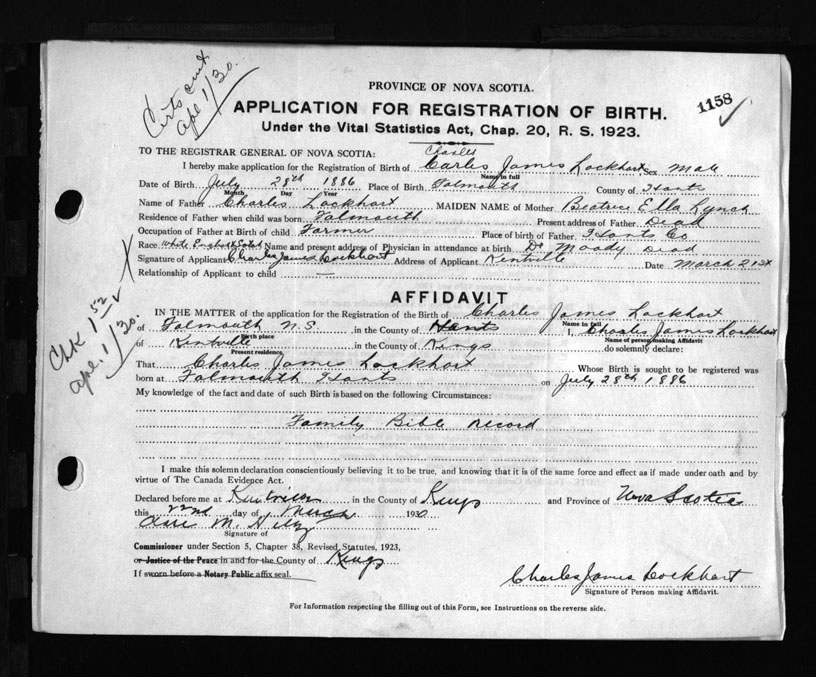 Certs out
apl 1/30.
PROVINCE OF NOVA SCOTIA.
1158
APPLICATION FOR REGISTRATION OF BIRTH.
Under the Vital Statistics Act, Chap. 20, R. S. 1923.
TO THE REGISTRAR GENERAL OF NOVA SCOTIA:
Charles
I hereby make application for the Registration of Birth of Carles James Lockhart Sex Male
Name in full
Date of Birth July 28th 1886 Place of Birth Falmouth County of Hants
Month Day Year
Name of Father Charles Lockhart MAIDEN NAME of Mother Beatrice Ella Lynch
Residence of Father when child was born Falmouth Present address of Father Dead
Occupation of Father at Birth of child Farmer Place of birth of Father Hants Co
Race White English & Scotch Name and present address of Physician in attendance at birth Dr Moody Dead
Signature of Applicant Charles James Lockhart Address of Applicant Kentville Date March 21st
Relationship of Applicant to child —
Chk 1.52
apl. 1/30.
AFFIDAVIT
IN THE MATTER of the application for the Registration of the Birth of Charles James Lockhart
Name in full
of Falmouth N.S. , in the County of Hants I, Charles James Lockhart
Birth place Name of person making Affidavit
of Kentville in the County of Kings do solemnly declare:
Present residence
That Charles James Lockhart Whose Birth is sought to be registered was
born at Falmouth Hants on July 28th 1886
My knowledge of the fact and date of such Birth is based on the following Circumstances:
Family Bible record
I make this solemn declaration conscientiously believing it to be true, and knowing that it is of the same force and effect as if made under oath and by
virtue of The Canada Evidence Act.
Declared before me at Kentville in the County of Kings and Province of Nova Scotia
this 22nd day of March 1930
M.
Signature of
Commissioner under Section 5, Chapter 38, Revised Statutes, 1923,
or Justice of the Peace in and for the County of Kings
If sworn before a Notary Public affix seal.
Charles James Lockhart
Signature of Person making Affidavit.
For Information respecting the filling out of this Form, see Instructions on the reverse side.